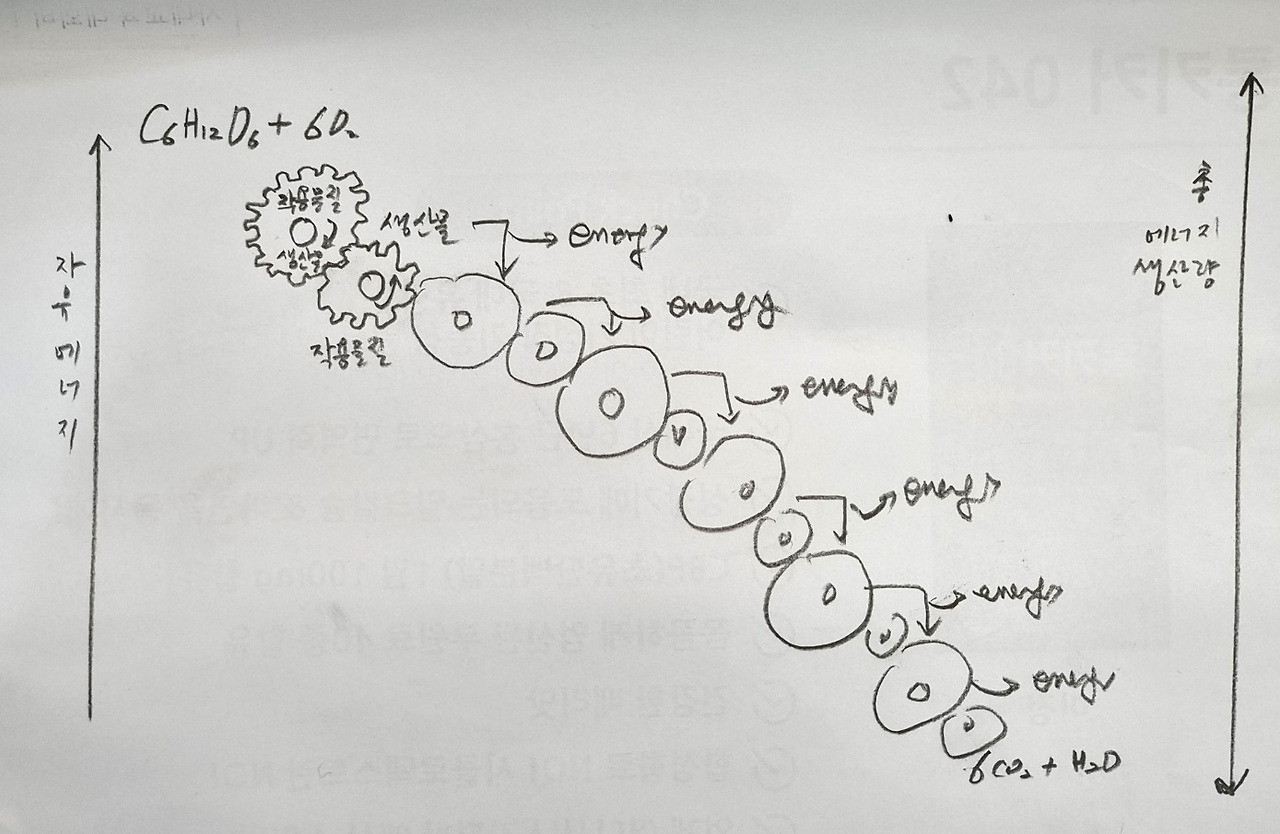 C₆H₁₂O₆ + 6O₂
작용물질
생산물
생산물
작용물질
energy
energy
energy
energy
energy
energy
6CO₂ + H₂O
자유에너지
총
에너지
생산량